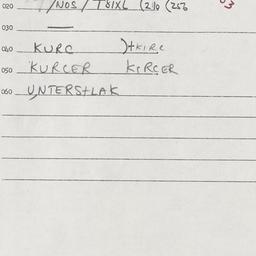 020 /NOS / TØIXL (210 (256
030 —
040 KURC )+KIRC
050 KURCER KIRCER
060 UNTERSTLAK